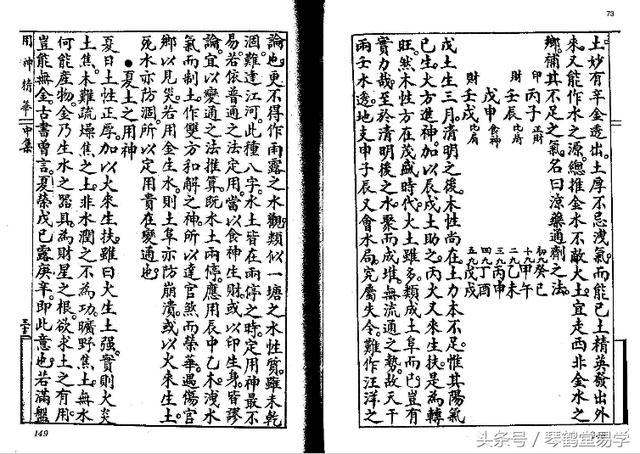 73
土妙有辛金透出。土厚不忌洩氣。而能已土精英發出外
來又能作水之源。總推金水不敵火土。宜走西北金水之
鄉補其不足之氣名曰涼藥通劑之法。
印 丙子 正財
財 壬辰 比肩
戊申 食神
財 壬戌 比肩
初九癸巳
十九甲午
二九乙未
三九丙申
四九丁酉
五九戊戌
戊土生三月清明之後。木性尚在土力本不足。惟其陽氣
已生火方進神。加以辰戌土助之。丙火又來生扶。是為轉
旺。然木性方在茂盛時代。火土雖多類成土阜而已。豈有
實力哉。至於清明後之水聚而成堆。無流通之勢。故天干
兩壬水透。地支申子辰又會水局。究屬失令。難作汪洋之
論也。更不得作雨露之水觀。類似一塘之水性質。雖未乾
涸。難達江河。此種八字。水土皆在兩停之時。定用神最不
易。若依普通之法定用。當以食神生財。或以印生身。皆謬
論。宜以變通之法推算。既水土兩停。應用辰中乙木洩水
氣而制土。作雙方和解之神。所以達官煞而榮華。遇傷官
鄉以見災。若用金生水。則土阜亦防崩潰。或以火來生土。
死水亦防涸。所以定用貴在變通也。
●夏土之用神
夏日土性正厚。加以火來生扶。雖曰火生土強。實則火炎
土焦。木難疏燥焦之土。非水潤之不為功。曠野焦土。無水
何能產物。金乃生水之器具。為財星之根。欲求土之有用。
豈能無金。古書曾言。夏榮戊己露庚辛。即此意也。若滿盤
用神精華 中集
149
头条号／琴鹤堂易学